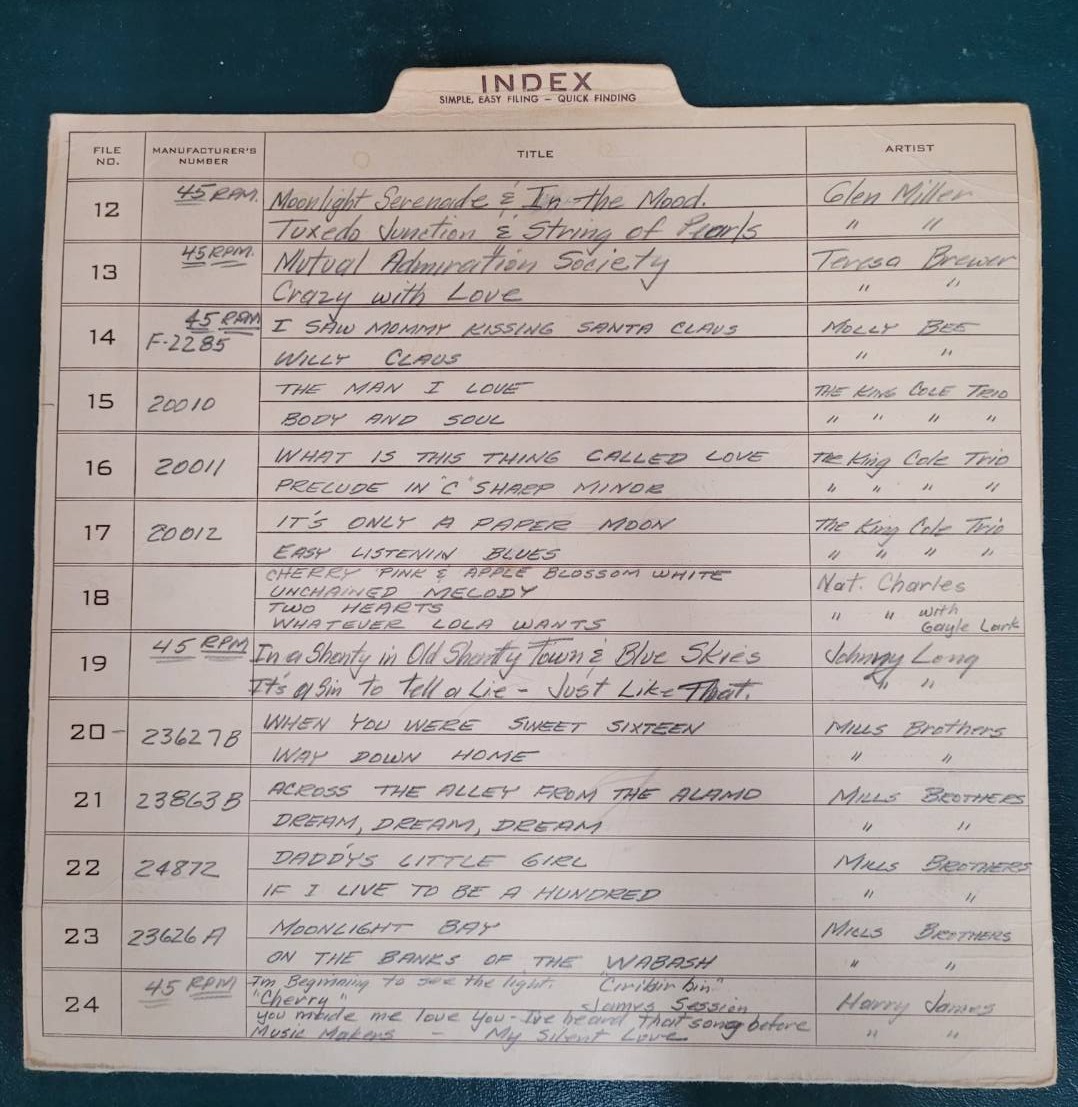 INDEX
SIMPLE, EASY FILING – QUICK FINDING
FILE NO. MANUFACTURER'S NUMBER TITLE ARTIST
12 45 RPM. Moonlight Serenade & In the Mood. Glen Miller
Tuxedo Junction & String of Pearls " "
13 45 RPM. Mutual Admiration Society Teresa Brewer
Crazy with Love " "
14 45 RPM I SAW MOMMY KISSING SANTA CLAUS MOLLY BEE
F-2285 WILLY CLAUS " "
15 20010 THE MAN I LOVE THE KING COLE TRIO
BODY AND SOUL " " " "
16 20011 WHAT IS THIS THING CALLED LOVE The King Cole Trio
PRELUDE IN "C" SHARP MINOR " " " "
17 20012 IT'S ONLY A PAPER MOON The King Cole Trio
EASY LISTENIN BLUES " " " "
18 CHERRY PINK & APPLE BLOSSOM WHITE Nat. Charles
UNCHAINED MELODY
TWO HEARTS " " with
WHATEVER LOLA WANTS Gayle Lark
19 45 RPM In a Shanty in Old Shanty Town & Blue Skies Johnny Long
It's a Sin to tell a Lie - Just Like That. " "
20- 23627B WHEN YOU WERE SWEET SIXTEEN MILLS Brothers
WAY DOWN HOME " "
21 23863B ACROSS THE ALLEY FROM THE ALAMO MILLS BROTHERS
DREAM, DREAM, DREAM " "
22 24872 DADDY'S LITTLE GIRL MILLS BROTHERS
IF I LIVE TO BE A HUNDRED " "
23 23626A MOONLIGHT BAY MILLS BROTHERS
ON THE BANKS OF THE WABASH " "
24 45 RPM Im Beginning to see the light. "Ciribiribin"
"Cherry" James Session Harry James
you made me love You - I've heard That song before
Music Makers - My Silent Love " "